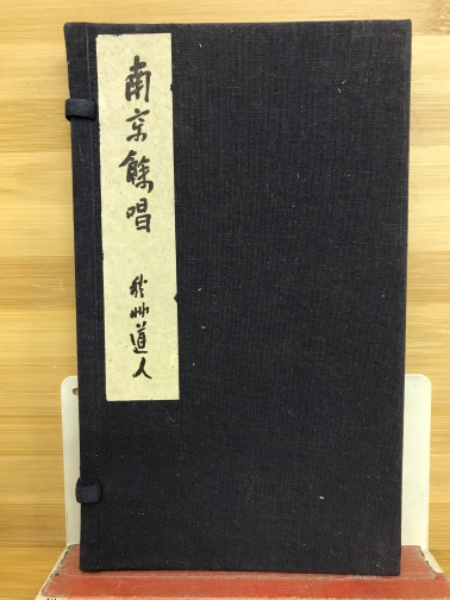 南京餘唱
秋艸道人